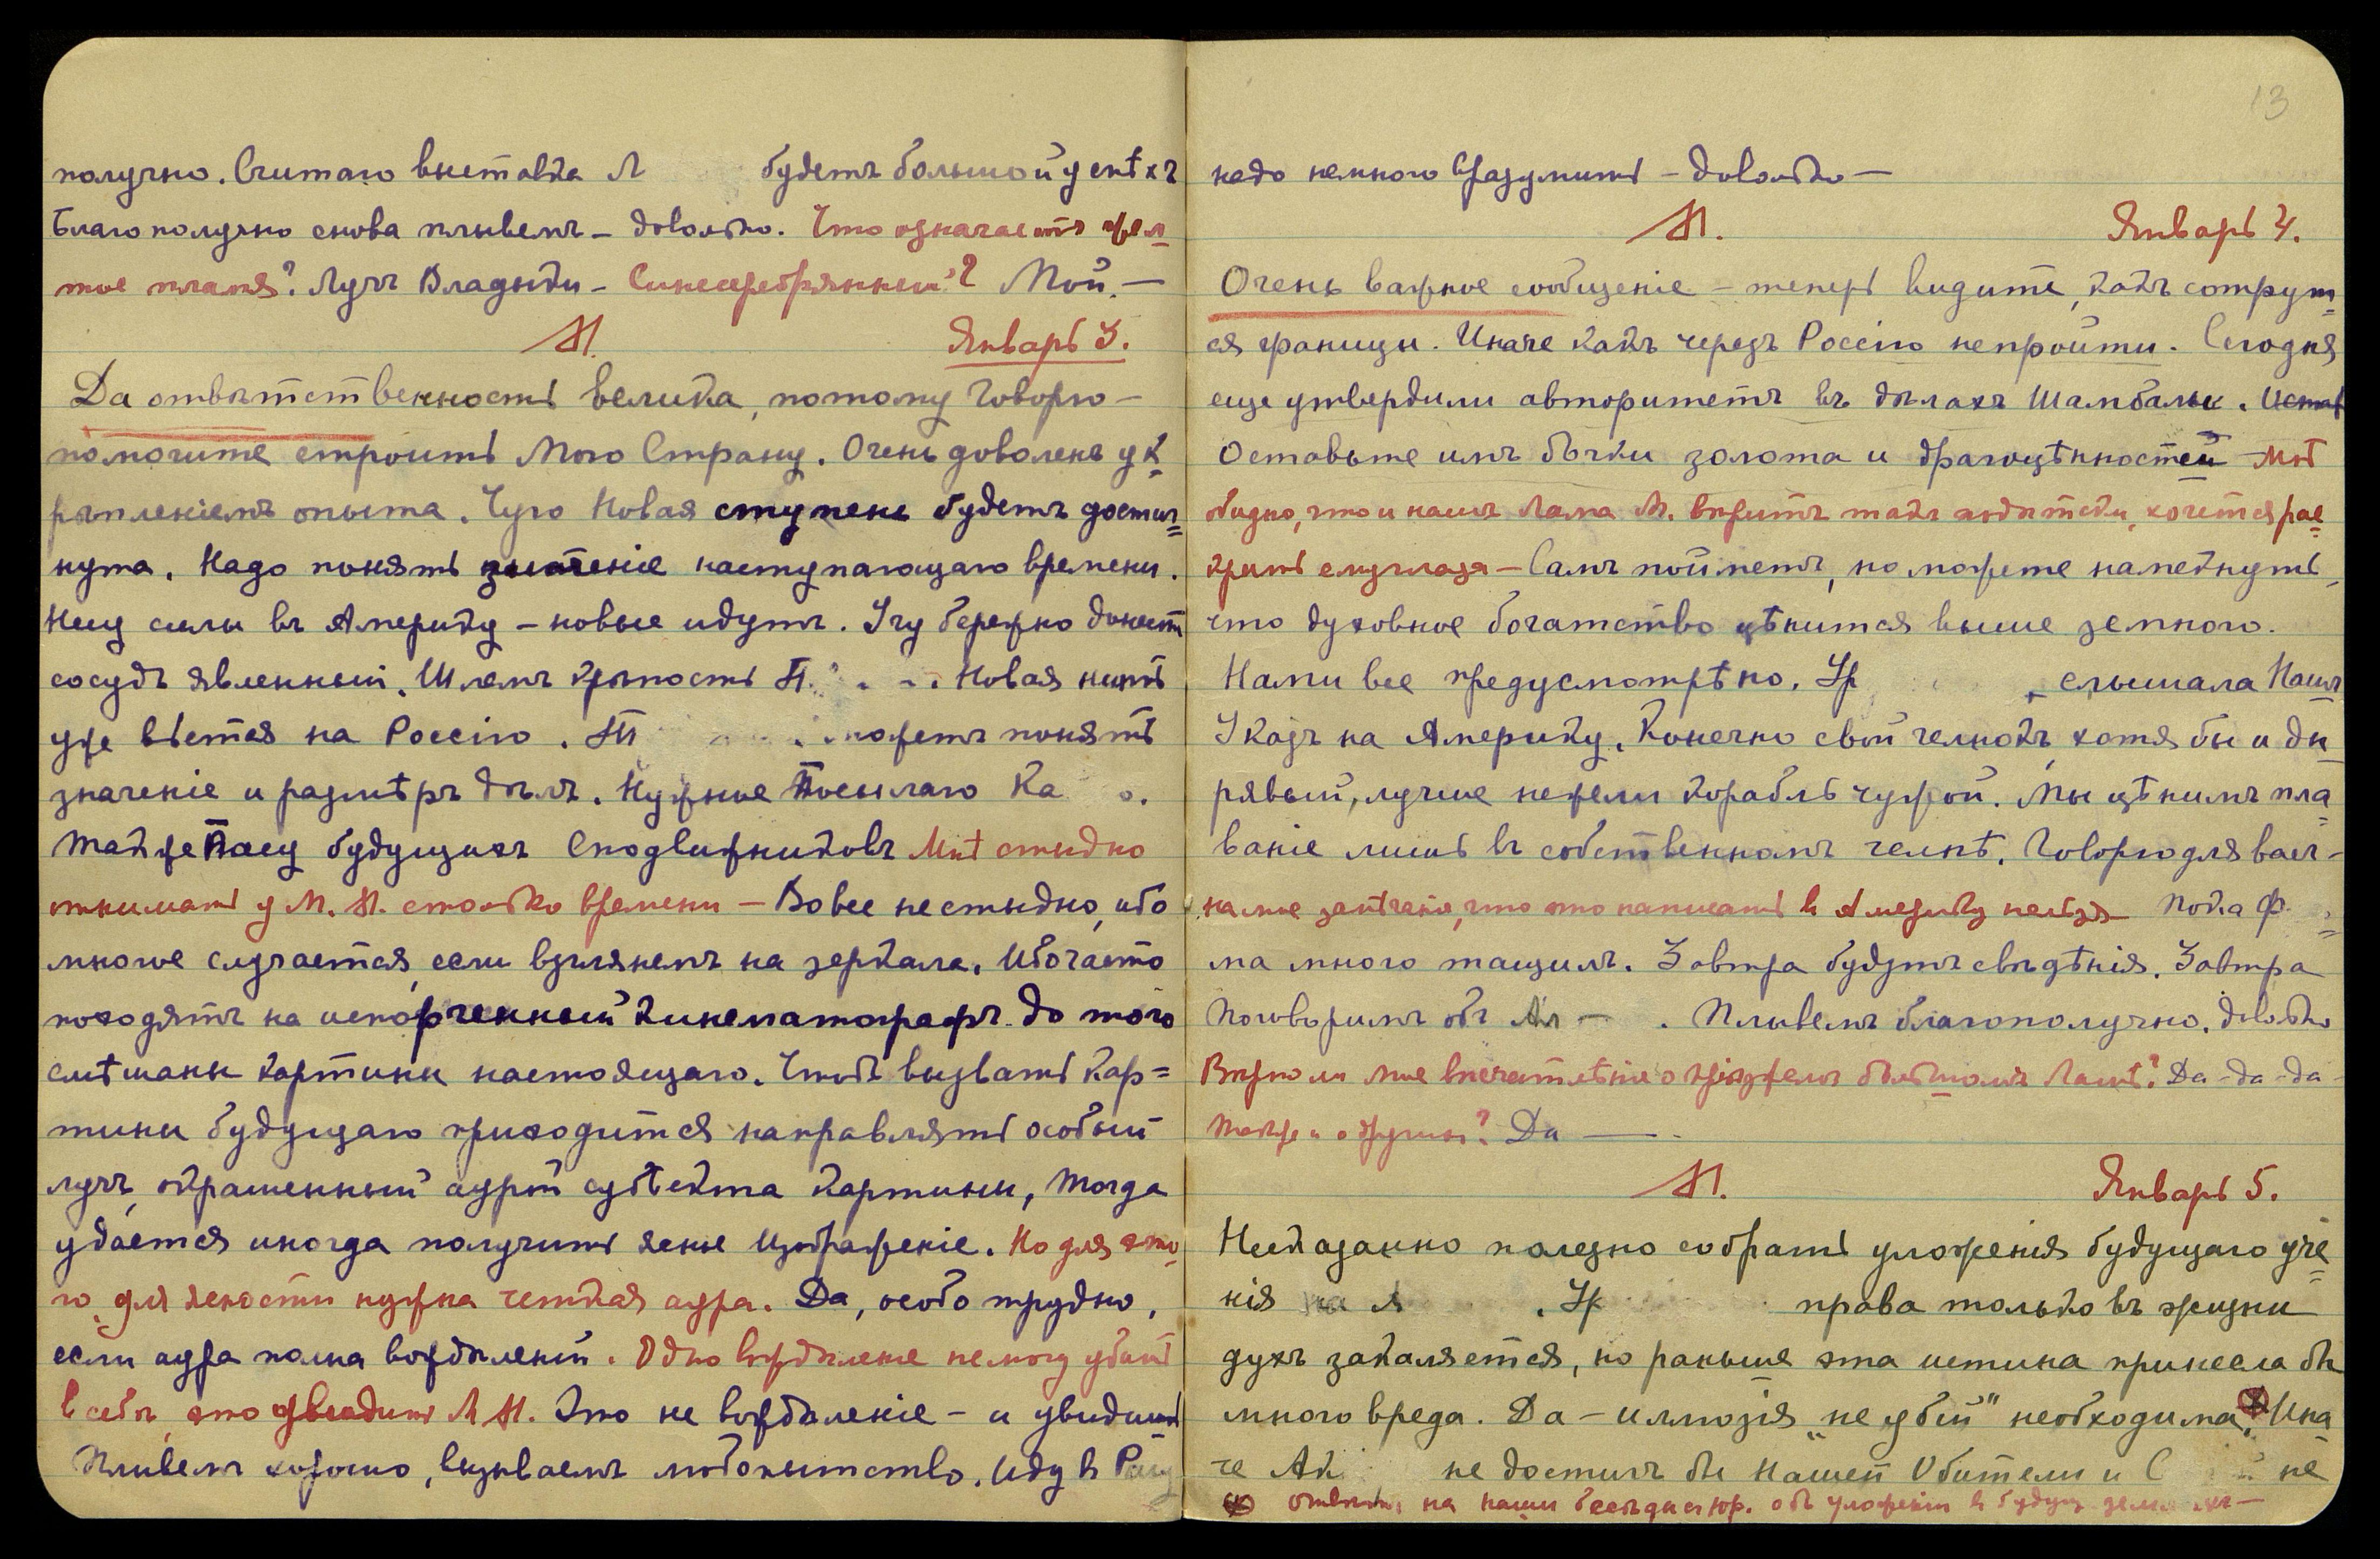 получно. Считаю выставка Л будетъ большой успѣхъ
Благополучно снова плывемъ – довольно. Что означаетъ жел-
тое пламя? Лучъ Владыки – Синесеребрянный? Мой. —
М. Январь 3.
Да отвѣтственность велика, потому говорю –
помогите строить Мою Страну. Очень доволенъ ук-
рѣпленіемъ опыта. Чую Новая ступень будетъ достиг-
нута. Надо понять значеніе наступающаго времени.
Нашу силы въ Америку – новые идутъ. Учу бережно донести
сосудъ явленный. Шлемъ крѣпость П. Новая нить
уже вьется на Россію. можетъ понять
значеніе и размѣръ дѣлъ. Нужное Посылаю Ка о.
также Пасу будущихъ Сподвижниковъ Мнѣ стыдно
отнимать у М. М. столько времени – Вовсе не стыдно, ибо
многое случается, если взглянемъ на зеркала. Ибо часто
походятъ на испорченный кинематографъ до того
смѣшаны картины настоящаго. Чтобъ вызвать кар=
тины будущаго приходится направлять особый
лучъ, окрашенный аурой субъекта картины, тогда
удается иногда получить ясные изображеніе. Но для это-
го, для ясности нужна четкая аура. Да, особо трудно,
если аура полна вожделеній. Одно вожделеніе не могу убить
въ себѣ, это увидить М М. Это не вожделеніе – и увидишь
Плывемъ хорошо, вызываемъ любопытство. Иду въ
13
надо немного вразумить – довольно —
М. Январь 4.
Очень важное сообщеніе – теперь видите, какъ сотрут-
ся границы. Иначе какъ черезъ Россію не пройти. Сегодня
еще утвердили авторитетъ въ дѣлахъ Шамбалы.
Оставьте имъ бочки золота и драгоцѣнностей – Мнѣ
обидно, что и нашъ Лама М. вѣритъ такъ по дѣтски, хочется рас=
крыть ему глаза – Самъ пойметъ, но можете намекнуть,
что духовное богатство цѣнится выше земного.
Нами все предусмотрѣно. Ур слышала Нашъ
Указъ на Америку. Конечно свой челнокъ, хотя бы и ды-
рявый, лучше нежели корабль чужой. Мы цѣнимъ пла=
ваніе лишь въ собственномъ челнѣ. Говорю для васъ –
на мое замѣчаніе, что это написать въ Америку нельзя – пока Ф =
ма много тащимъ. Завтра будутъ свѣдѣнія. Завтра
поговоримъ объ Ал – . Плывемъ благополучно, довольно
Вѣрно ли мое впечатлѣніе о пріѣзжемъ большомъ Ламѣ? Да – да – да –
также и о другихъ? Да —
М. Январь 5.
Несказанно полезно собрать уложенія будущаго уче=
нія на А . Ур права только въ жизни
духъ закаляется, но раньше эта истина принесла бы
много вреда. Да – иллюзія „не убій“ необходима. (х) Ина-
че Ак не достигъ бы Нашей Обители и С не
(х) отвѣтъ на наши бесѣды съ Юр. объ уложеніи въ будущ